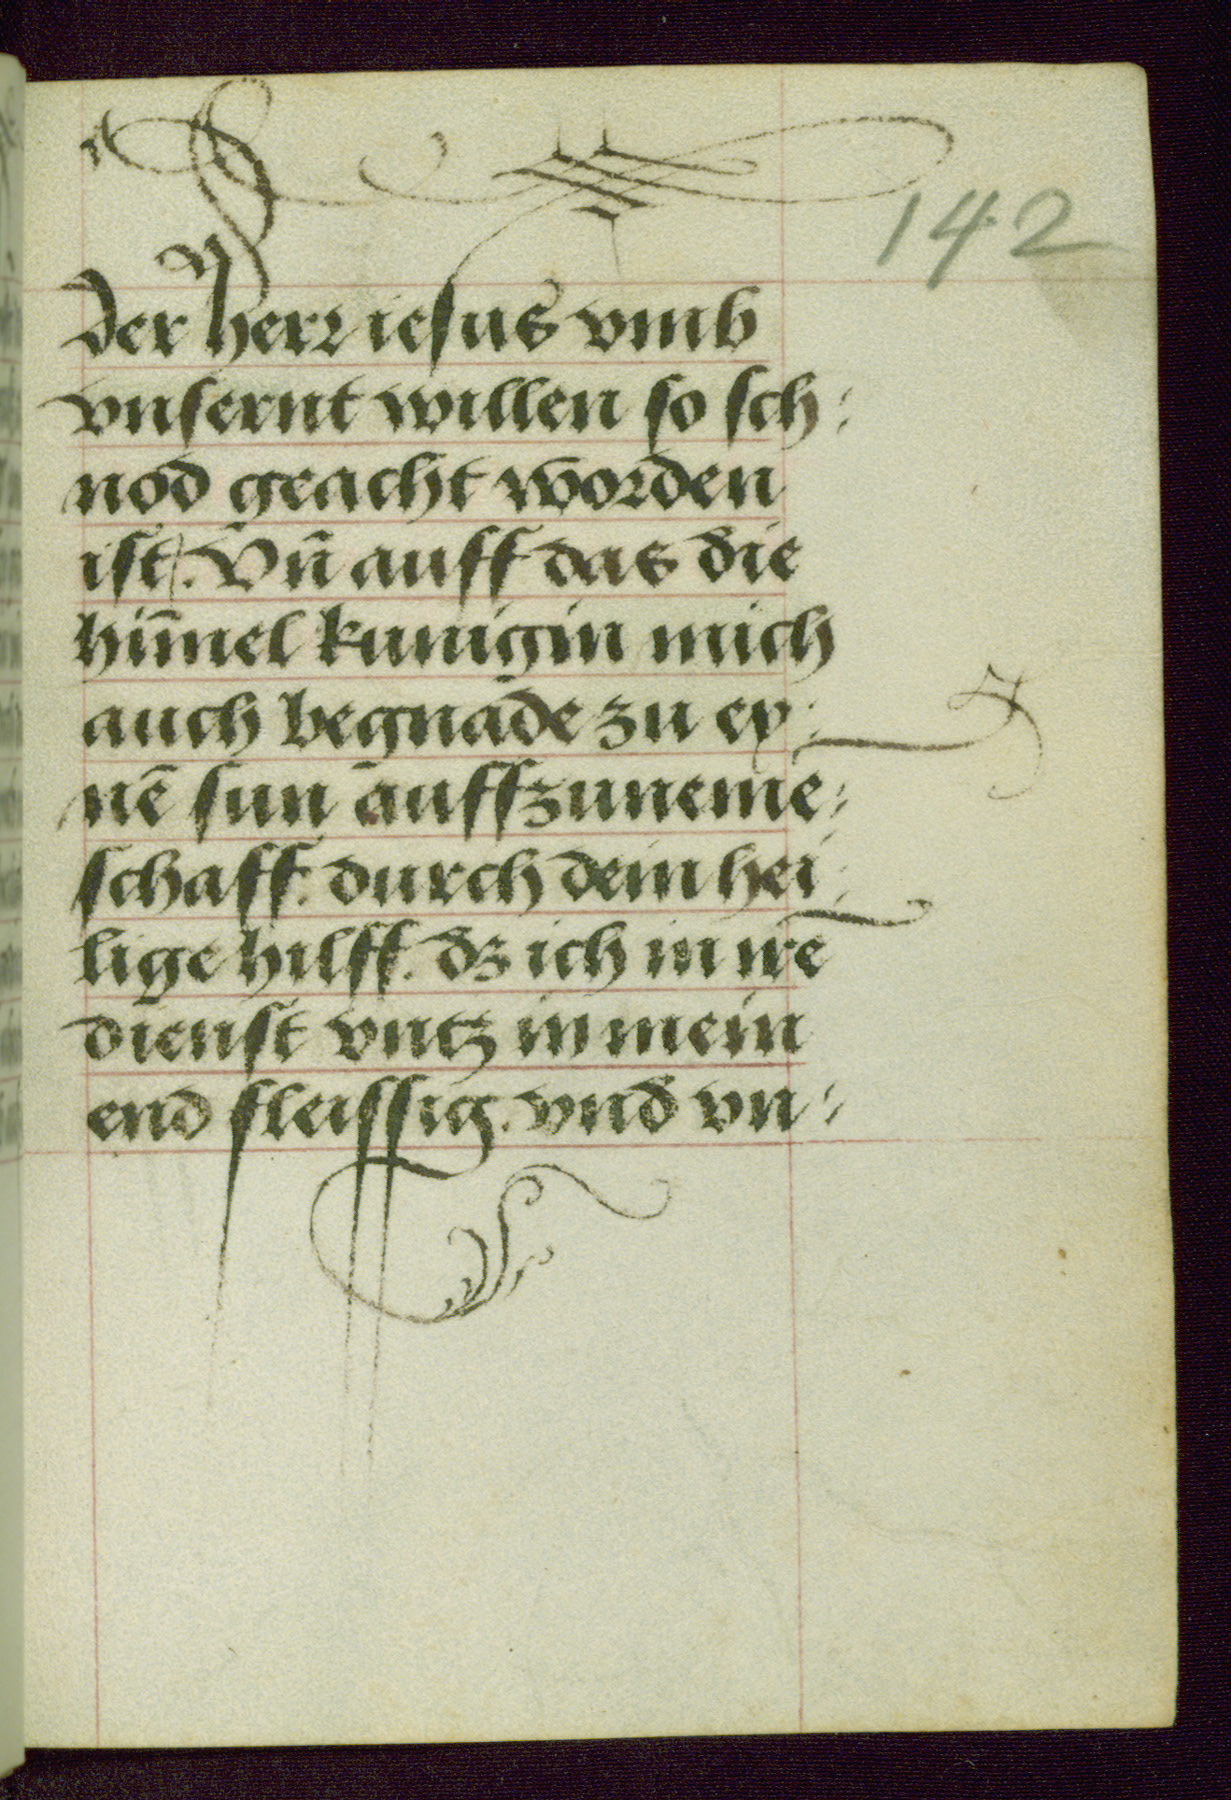 142
der herr iesus vmb
vnsernt willen so sch:
nöd geacht worden
ist. Vn̄ auff das die
him̄el kunigin mich
auch begnade zu ey:
nē sun auffzuneme:
schaff. durch dein hei:
lige hilff. dz ich in irē
dienst vntz in mein
end fleissig. vnd vn: